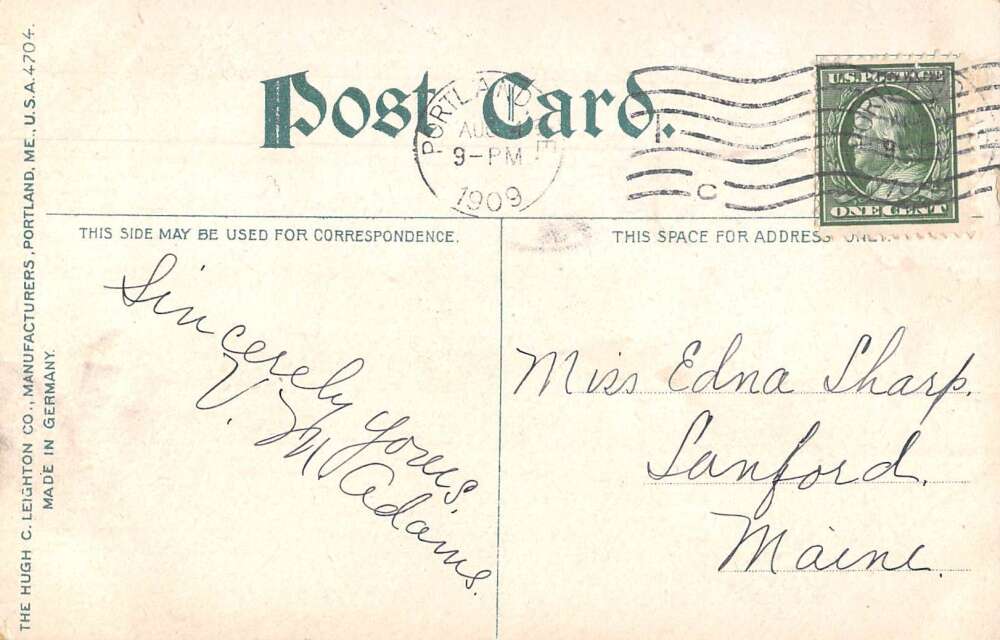 Post Card.
PORTLAND
AUG
9-PM
1909
C
U.S. POSTAGE
ONE CENT
THIS SIDE MAY BE USED FOR CORRESPONDENCE.
THIS SPACE FOR ADDRESS ONLY.
Sincerely Yours,
V. M Adams.
Miss Edna Sharp.
Sanford.
Maine.
THE HUGH C. LEIGHTON CO., MANUFACTURERS, PORTLAND, ME., U.S.A. 4704.
MADE IN GERMANY.